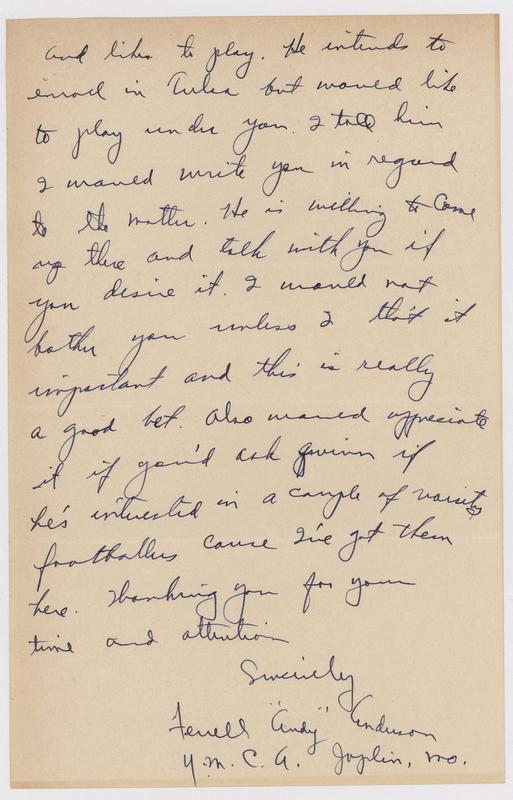 and likes to play. He intends to
enroll in Tulsa but would like
to play under you. I told him
I would write you in regard
to the matter. He is willing to come
up there and talk with you if
you desire it. I would not
bother you unless I thot it
important and this is really
a good bet. Also would appreciate
it if you'd ask Quinn if
he's interested in a couple of varsity
footballers cause I've got them
here. Thanking you for your
time and attention
Sincerely
Ferrell "Andy" Anderson
Y.M.C.A. Joplin, Mo.